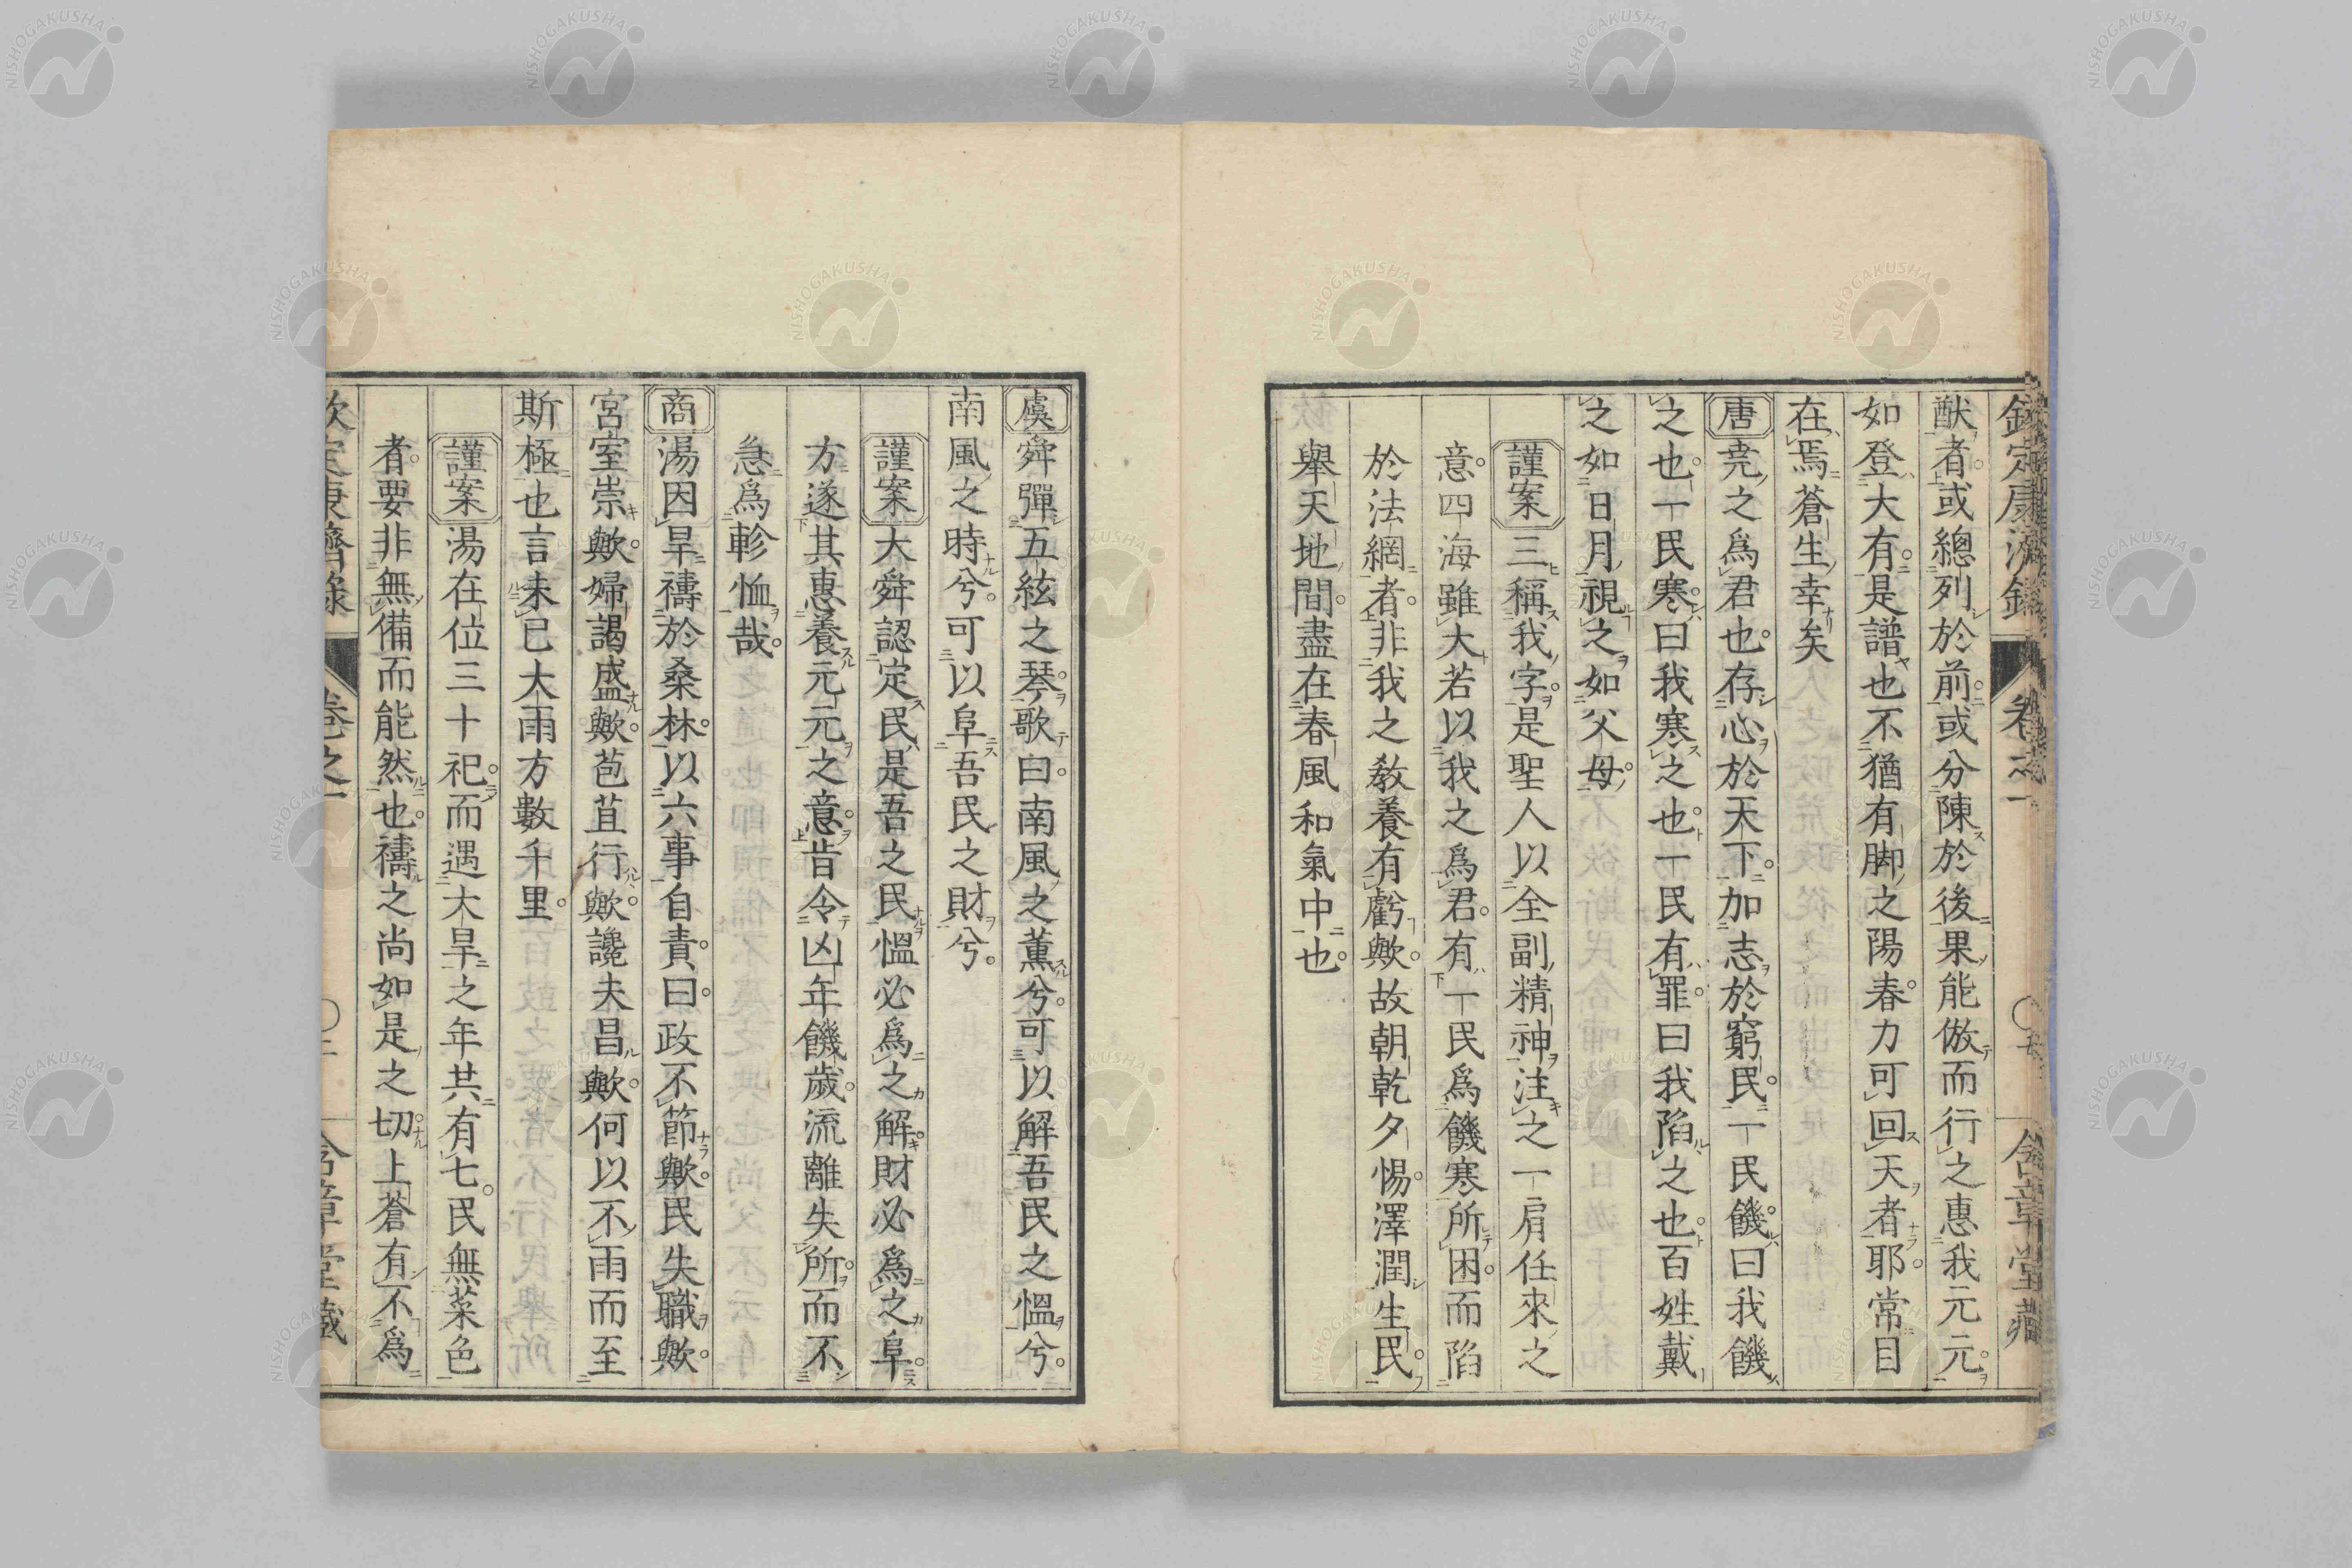 欽定康濟錄 卷之一 含章堂藏
猷者或總列於前或分陳於後果能倣而行之惠我元元
如登大有是譜也不猶有脚之陽春力可回天者耶常目
在焉蒼生幸矣
唐堯之爲君也存心於天下加志於窮民一民饑曰我饑
之也一民寒曰我寒之也一民有罪曰我陷之也百姓戴
之如日月視之如父母
謹案三稱我字是聖人以全副精神注之一肩任來之
意四海雖大若以我之爲君有一民爲饑寒所困而陷
於法網者非我之敎養有虧歟故朝乾夕惕澤潤生民
舉天地間盡在春風和氣中也
虞舜彈五絃之琴歌曰南風之薰兮可以解吾民之慍兮
南風之時兮可以阜吾民之財兮
謹案大舜認定民是吾之民慍必爲之解財必爲之阜
方遂其惠養元元之意肯令凶年饑歲流離失所而不
急爲軫恤哉
商湯因旱禱於桑林以六事自責曰政不節歟民失職歟
宮室崇歟婦謁盛歟苞苴行歟讒夫昌歟何以不雨而至
斯極也言未已大雨方數千里
謹案湯在位三十祀而遇大旱之年共有七民無菜色
者要非無備而能然也禱之尚如是之切上蒼有不爲
欽定康濟錄 卷之一 含章堂藏
NISHOGAKUSHA